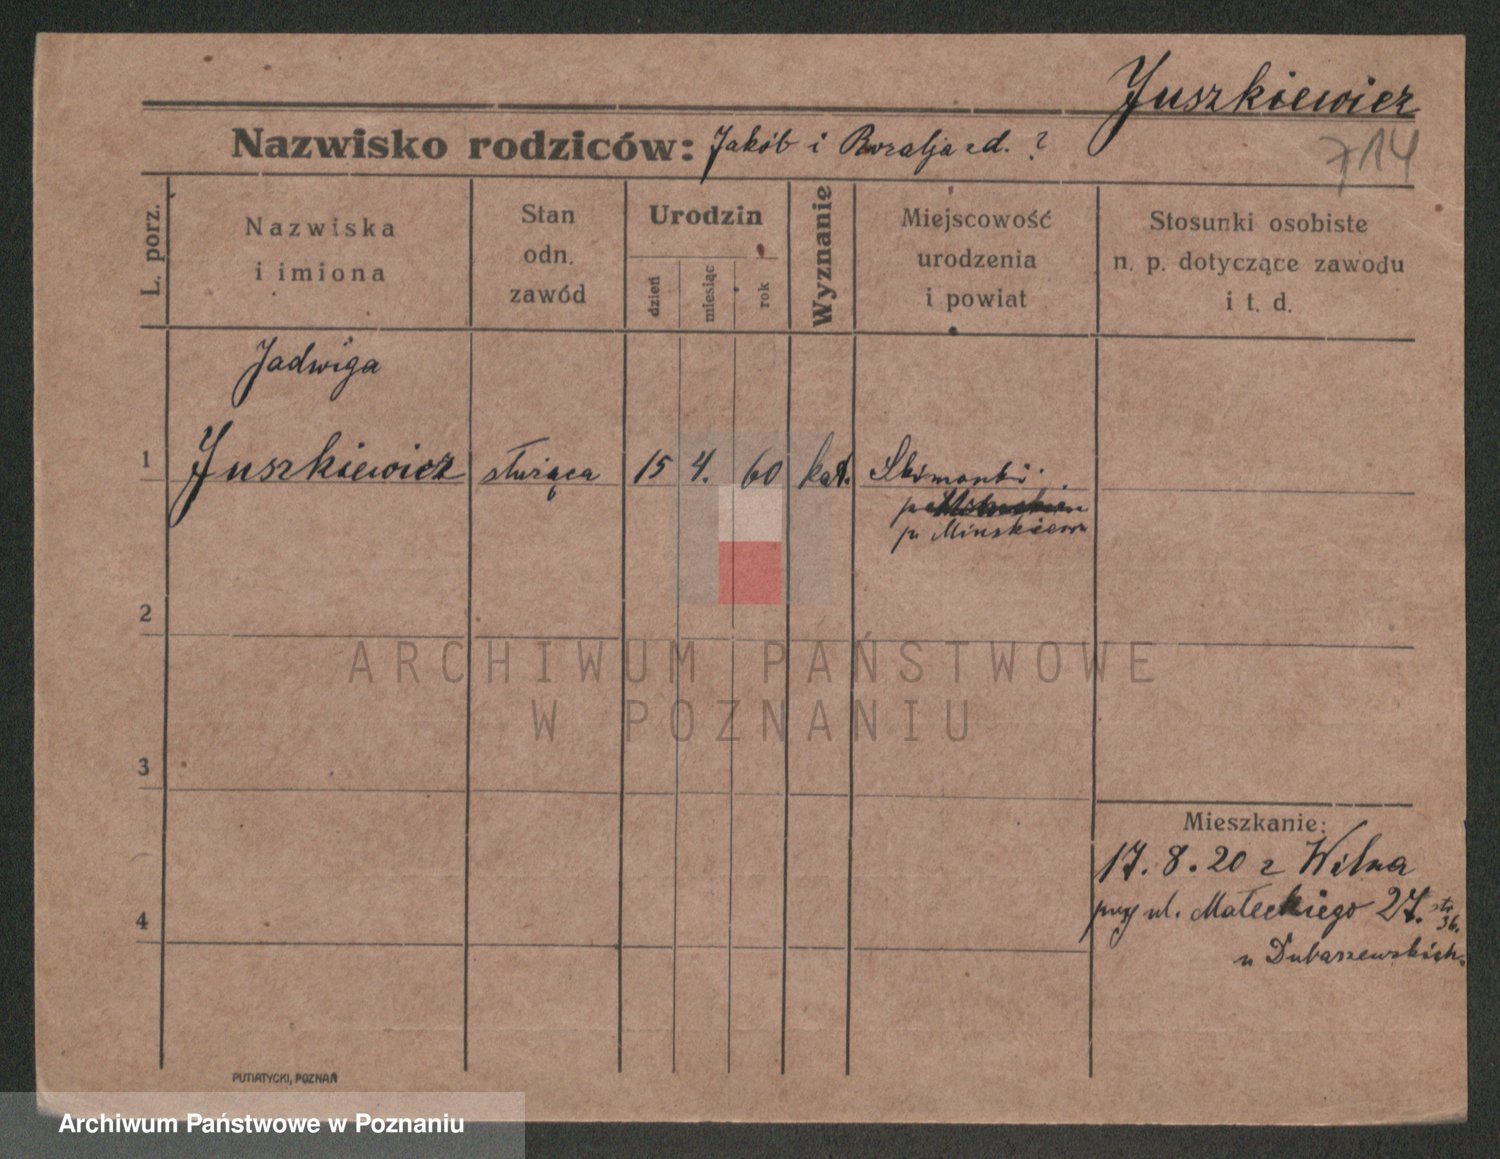 Juszkiewicz
714
Nazwisko rodziców: Jakób i Rozalja zd. ?
L. porz.
Nazwiska
i imiona
Stan
odn.
zawód
Urodzin
dzień
miesiąc
rok
Wyznanie
Miejscowość
urodzenia
i powiat
Stosunki osobiste
n. p. dotyczące zawodu
i t. d.
Jadwiga
1 Juszkiewicz służąca 15 4. 60 kat.
p. Minskiem
2
ARCHIWUM PAŃSTWOWE
W POZNANIU
3
Mieszkanie:
17. 8. 20 z Wilna
przy ul. Małeckiego 27. str 36.
u Dubaszewskich.
4
PUTIATYCKI, POZNAŃ
Archiwum Państwowe w Poznaniu